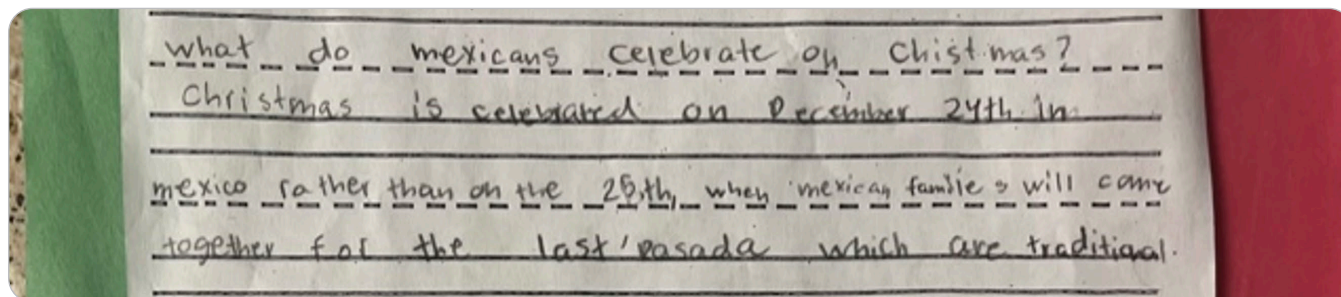 what do mexicans celebrate on Chistmas?
Christmas is celebrated on December 24th in
mexico rather than on the 25th, when mexican familie s will come
together for the last 'pasada which are traditional.